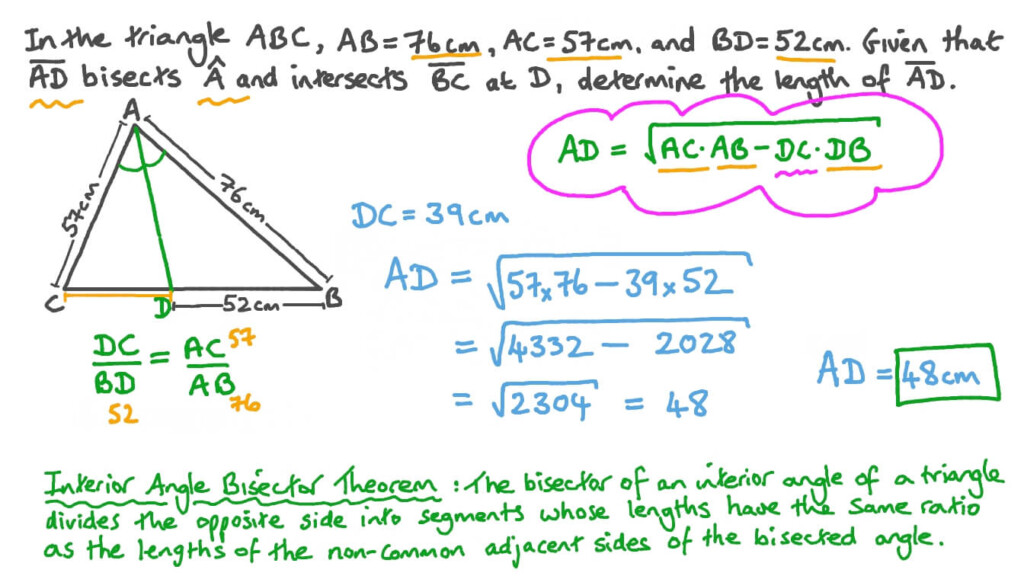 In the triangle ABC, AB=76cm, AC=57cm, and BD=52cm. Given that
AD bisects Â and intersects BC at D, determine the length of AD.
A
AD = √AC·AB−DC·DB
57cm
76cm
DC = 39cm
AD = √57×76−39×52
C
D
52cm
B
DC/BD = AC/AB
57
52
76
= √4332 − 2028
AD = 48cm
= √2304 = 48
Interior Angle Bisector Theorem : The bisector of an interior angle of a triangle
divides the opposite side into segments whose lengths have the same ratio
as the lengths of the non-common adjacent sides of the bisected angle.